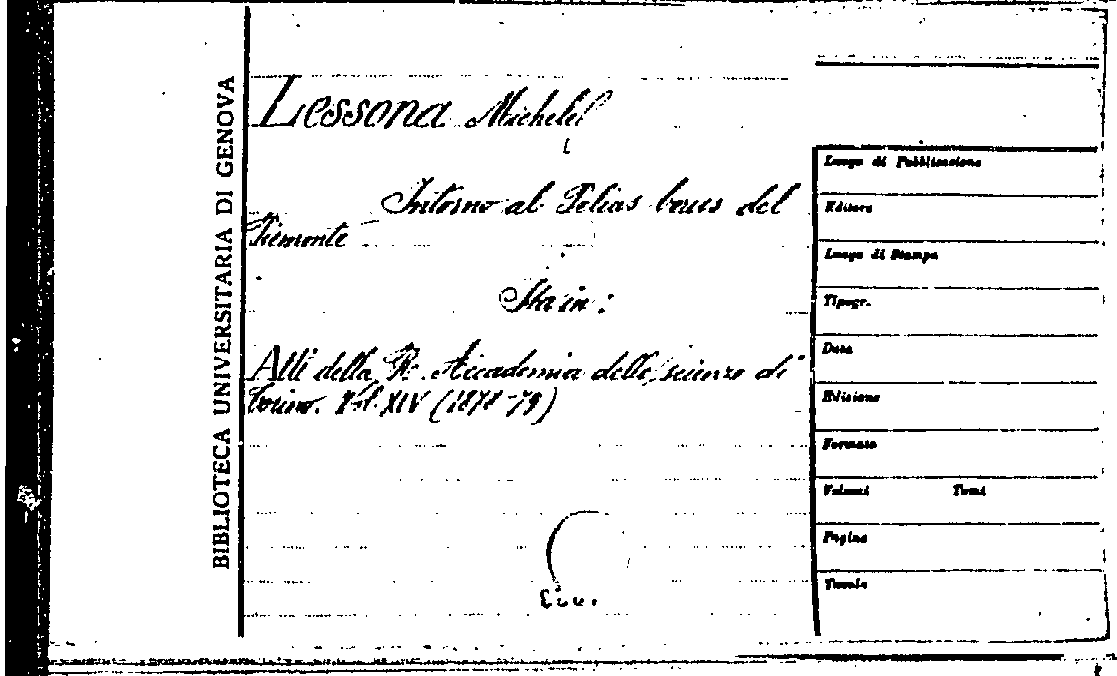 BIBLIOTECA UNIVERSITARIA DI GENOVA
Lessona Michele
Intorno al Pelias berus del
Piemonte
Sta in:
Atti della R. Accademia delle scienze di
Torino. Vol. XIV (1878-79)
Luogo di Pubblicazione
Editore
Luogo di Stampa
Tipogr.
Data
Edizione
Formato
Volumi Tomi
Pagine
Tavole